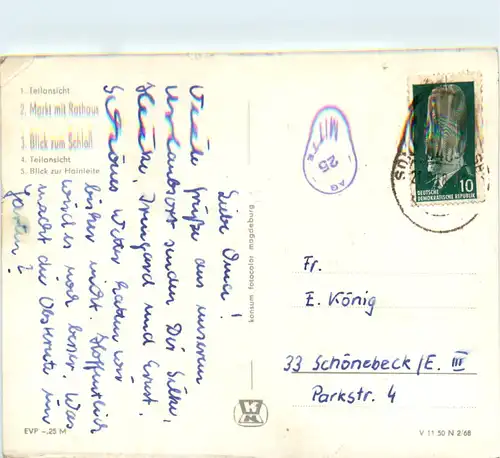 1. Teilansicht
2. Markt mit Rathaus
3. Blick zum Schloß
4. Teilansicht
5. Blick zur Hainleite
Liebe Oma!
Viele Grüße aus unserem
Urlaubsort senden Dir Silke,
Heike, Irmgard und Ernst.
Schönes Wetter hatten wir
bisher nicht. Hoffentlich
wird es noch besser. Was
macht die Obsternte im
Garten?
EVP –,25 M
konsum fotocolor magdeburg
MITTE
25
AG
10
DEUTSCHE
DEMOKRATISCHE REPUBLIK
Fr.
E. König
33 Schönebeck/E. III
Parkstr. 4
V 11 50 N 2/68